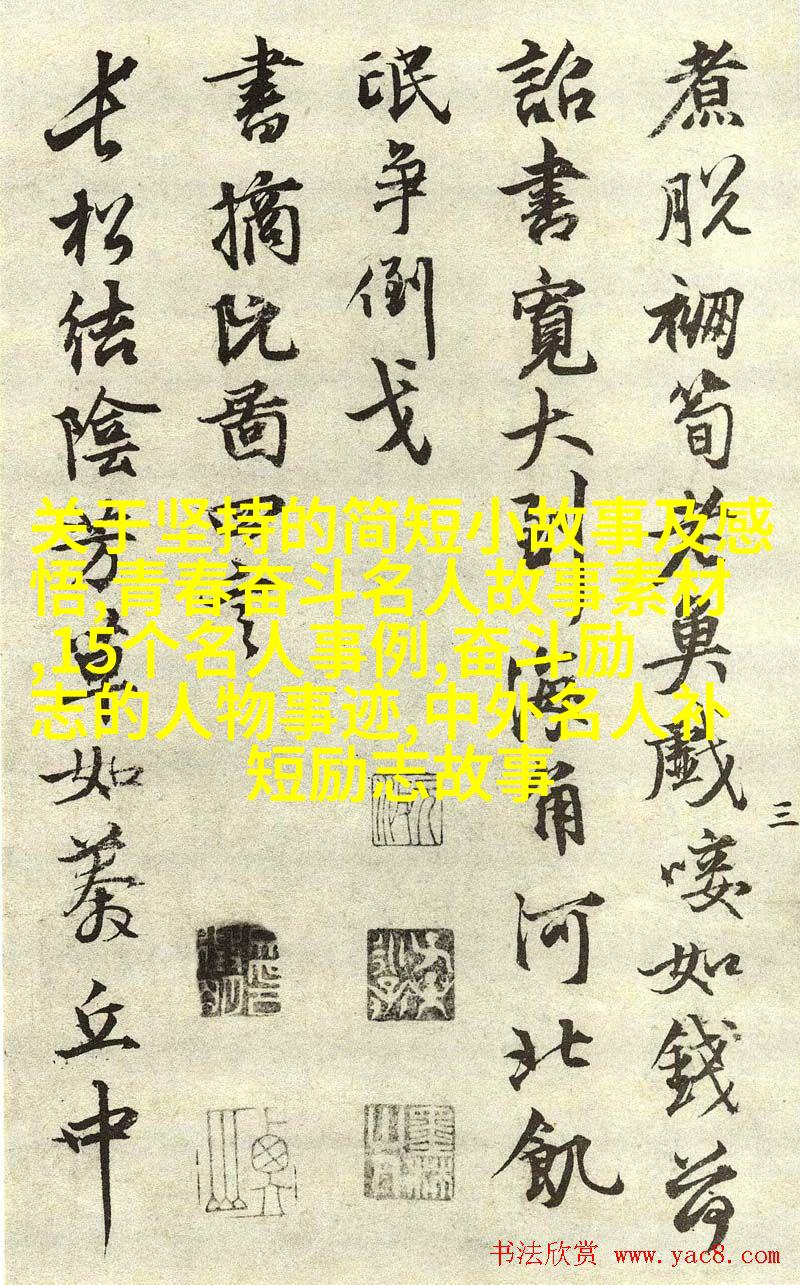 煮脫襧筍戲唼如錢荷
詔書寬大到海角河北飢
氓争倒戈
書摘阮圖四言
長松結陰芳草如丘中
三
关于坚持的简短小故事及感
悟,青春奋斗名人故事素材
,15个名人事例,奋斗励
志的人物事迹,中外名人补
短励志故事
书法欣赏 www.yac8.com